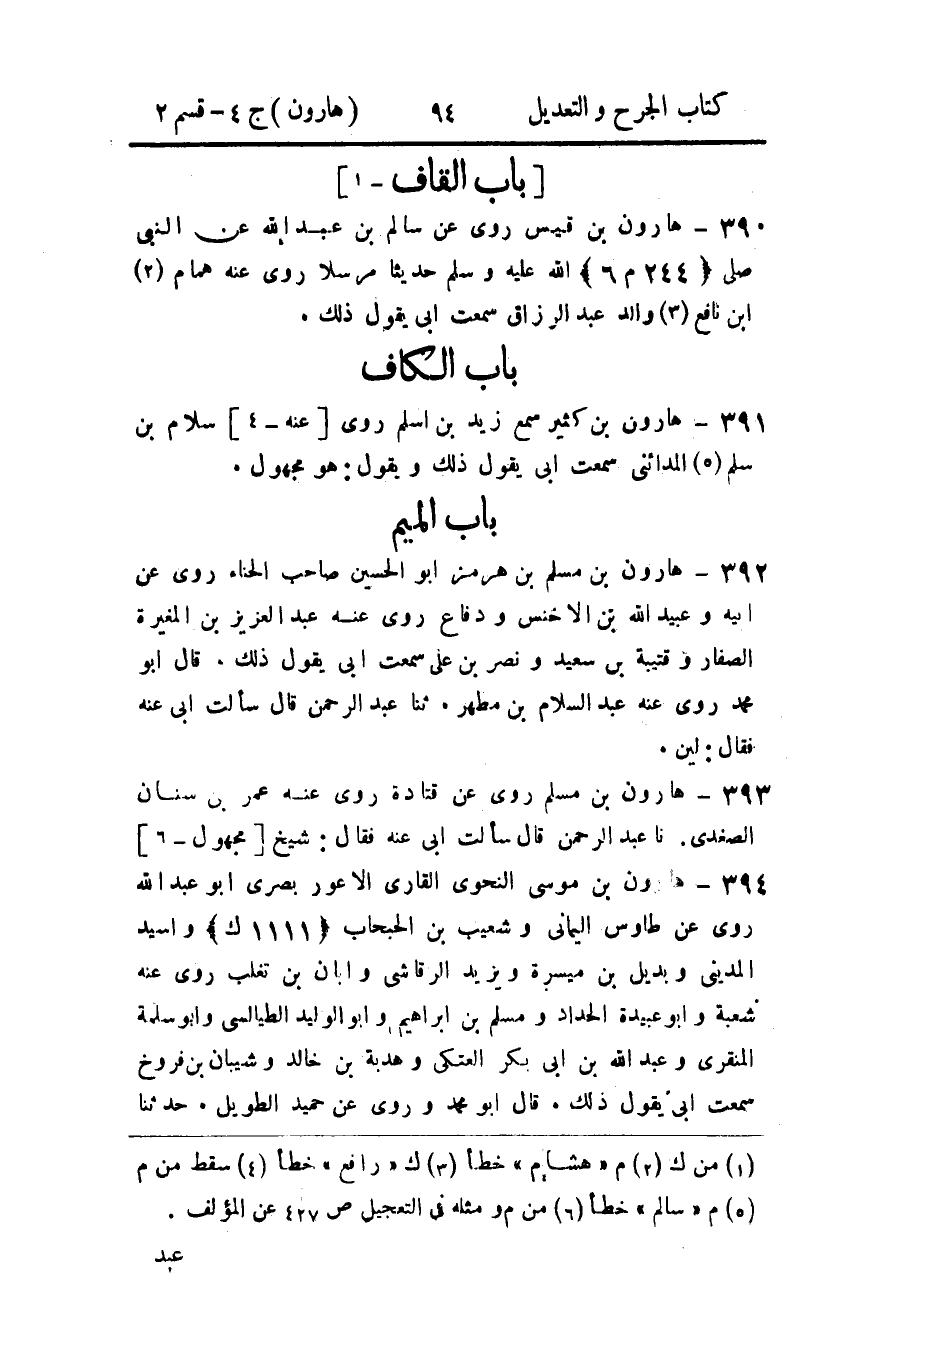 كتاب الجرح والتعديل ٩٤ (هارون) ج ٤ - قسم ٢
[باب القاف - ١]
٣٩٠ - هارون بن قيس روى عن سالم بن عبد الله عن النبى
صلى ﴿٢٤٤ م ٦﴾ الله عليه و سلم حديثا مرسلا روى عنه همام (٢)
ابن نافع (٣) والد عبد الرزاق سمعت ابى يقول ذلك .
باب الكاف
٣٩١ - هارون بن كثير سمع زيد بن اسلم روى [عنه - ٤] سلام بن
سلم (٥) المدائنى سمعت ابى يقول ذلك و يقول : هو مجهول .
باب الميم
٣٩٢ - هارون بن مسلم بن هرمز ابو الحسين صاحب الحناء روى عن
ابيه و عبيد الله بن الاخنس و دفاع روى عنه عبد العزيز بن المغيرة
الصفار و قتيبة بن سعيد و نصر بن على سمعت ابى يقول ذلك . قال ابو
محمد روى عنه عبد السلام بن مطهر . ثنا عبد الرحمن قال سألت ابى عنه
فقال : لين .
٣٩٣ - هارون بن مسلم روى عن قتادة روى عنه عمر بن سنان
الصغدى . نا عبد الرحمن قال سألت ابى عنه فقال : شيخ [مجهول - ٦]
٣٩٤ - هارون بن موسى النحوى القارى الاعور بصرى ابو عبد الله
روى عن طاوس اليمانى و شعيب بن الحبحاب ﴿١١١١ ك﴾ و اسيد
المدينى و بديل بن ميسرة و يزيد الرقاشى و ابان بن تغلب روى عنه
شعبة و ابو عبيدة الحداد و مسلم بن ابراهيم و ابو الوليد الطيالسى و ابو سلمة
المنقرى و عبد الله بن ابى بكر العتكى و هدبة بن خالد و شيبان بن فروخ
سمعت ابى يقول ذلك . قال ابو محمد و روى عن حميد الطويل . حدثنا
(١) من ك (٢) م « هشام » خطأ (٣) ك « رافع » خطأ (٤) سقط من م
(٥) م « سالم » خطأ (٦) من م و مثله فى التعجيل ص ٤٢٧ عن المؤلف .
عبد